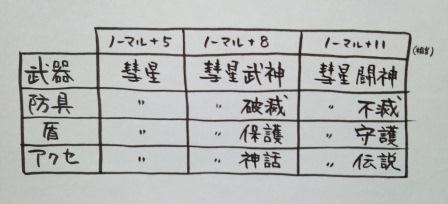 ノーマル+5 ノーマル+8 ノーマル+11 (相当)
武器 彗星 彗星武神 彗星闘神
防具 〃 〃 破滅 〃 不滅
盾 〃 〃 保護 〃 守護
アクセ 〃 〃 神話 〃 伝説